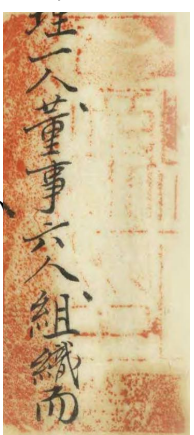 理一人董事六人組織而